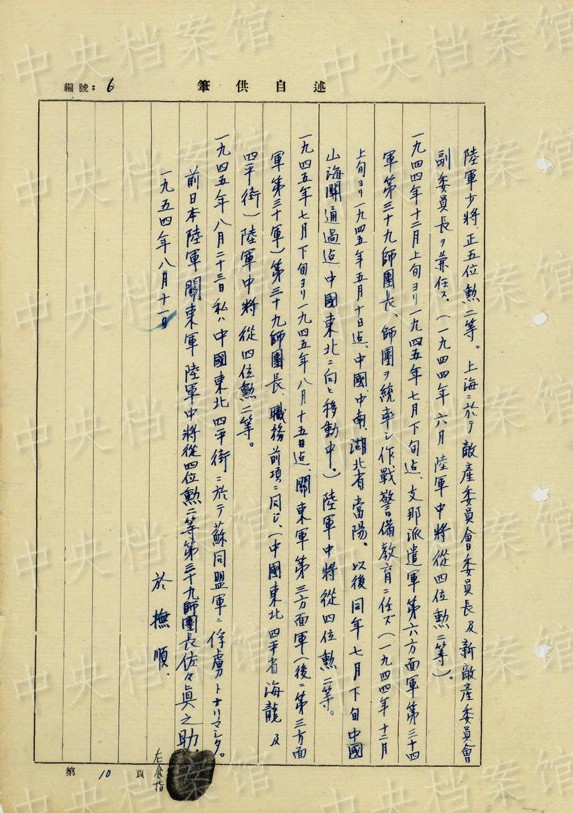 編號：6
筆供自述
陸軍少將正五位勲二等。上海ニ於テ敵產委員會委員長及新敵產委員會
副委員長ヲ兼任ス。（一九四四年六月陸軍中將從四位勲二等）。
一九四四年十二月上旬ヨリ一九四五年七月下旬迄、支那派遣軍第六方面軍第三十四
軍第三十九師團長、師團ヲ統率シ作戰警備教育ニ任ズ（一九四四年十二月
上旬ヨリ一九四五年五月十日迄、中國中南、湖北省當陽。以後同年七月下旬中國
山海關通過迄、中國東北ニ向ヒ移動中。）陸軍中將從四位勲二等。
一九四五年七月下旬ヨリ一九四五年八月十五日迄、關東軍第三方面軍（後ニ第三方面
軍第三十軍）第三十九師團長、職務前項ニ同ジ、（中國東北四平省海龍及
四平街）陸軍中將從四位勲二等。
一九四五年八月二十三日私ハ中國東北四平街ニ於テ蘇同盟軍ニ俘虜トナリマシタ。
前日本陸軍關東軍陸軍中將從四位勲二等第三十九師團長佐々眞之助
一九五四年八月十一日
於撫順.
左食指
第 10 頁
中央档案馆